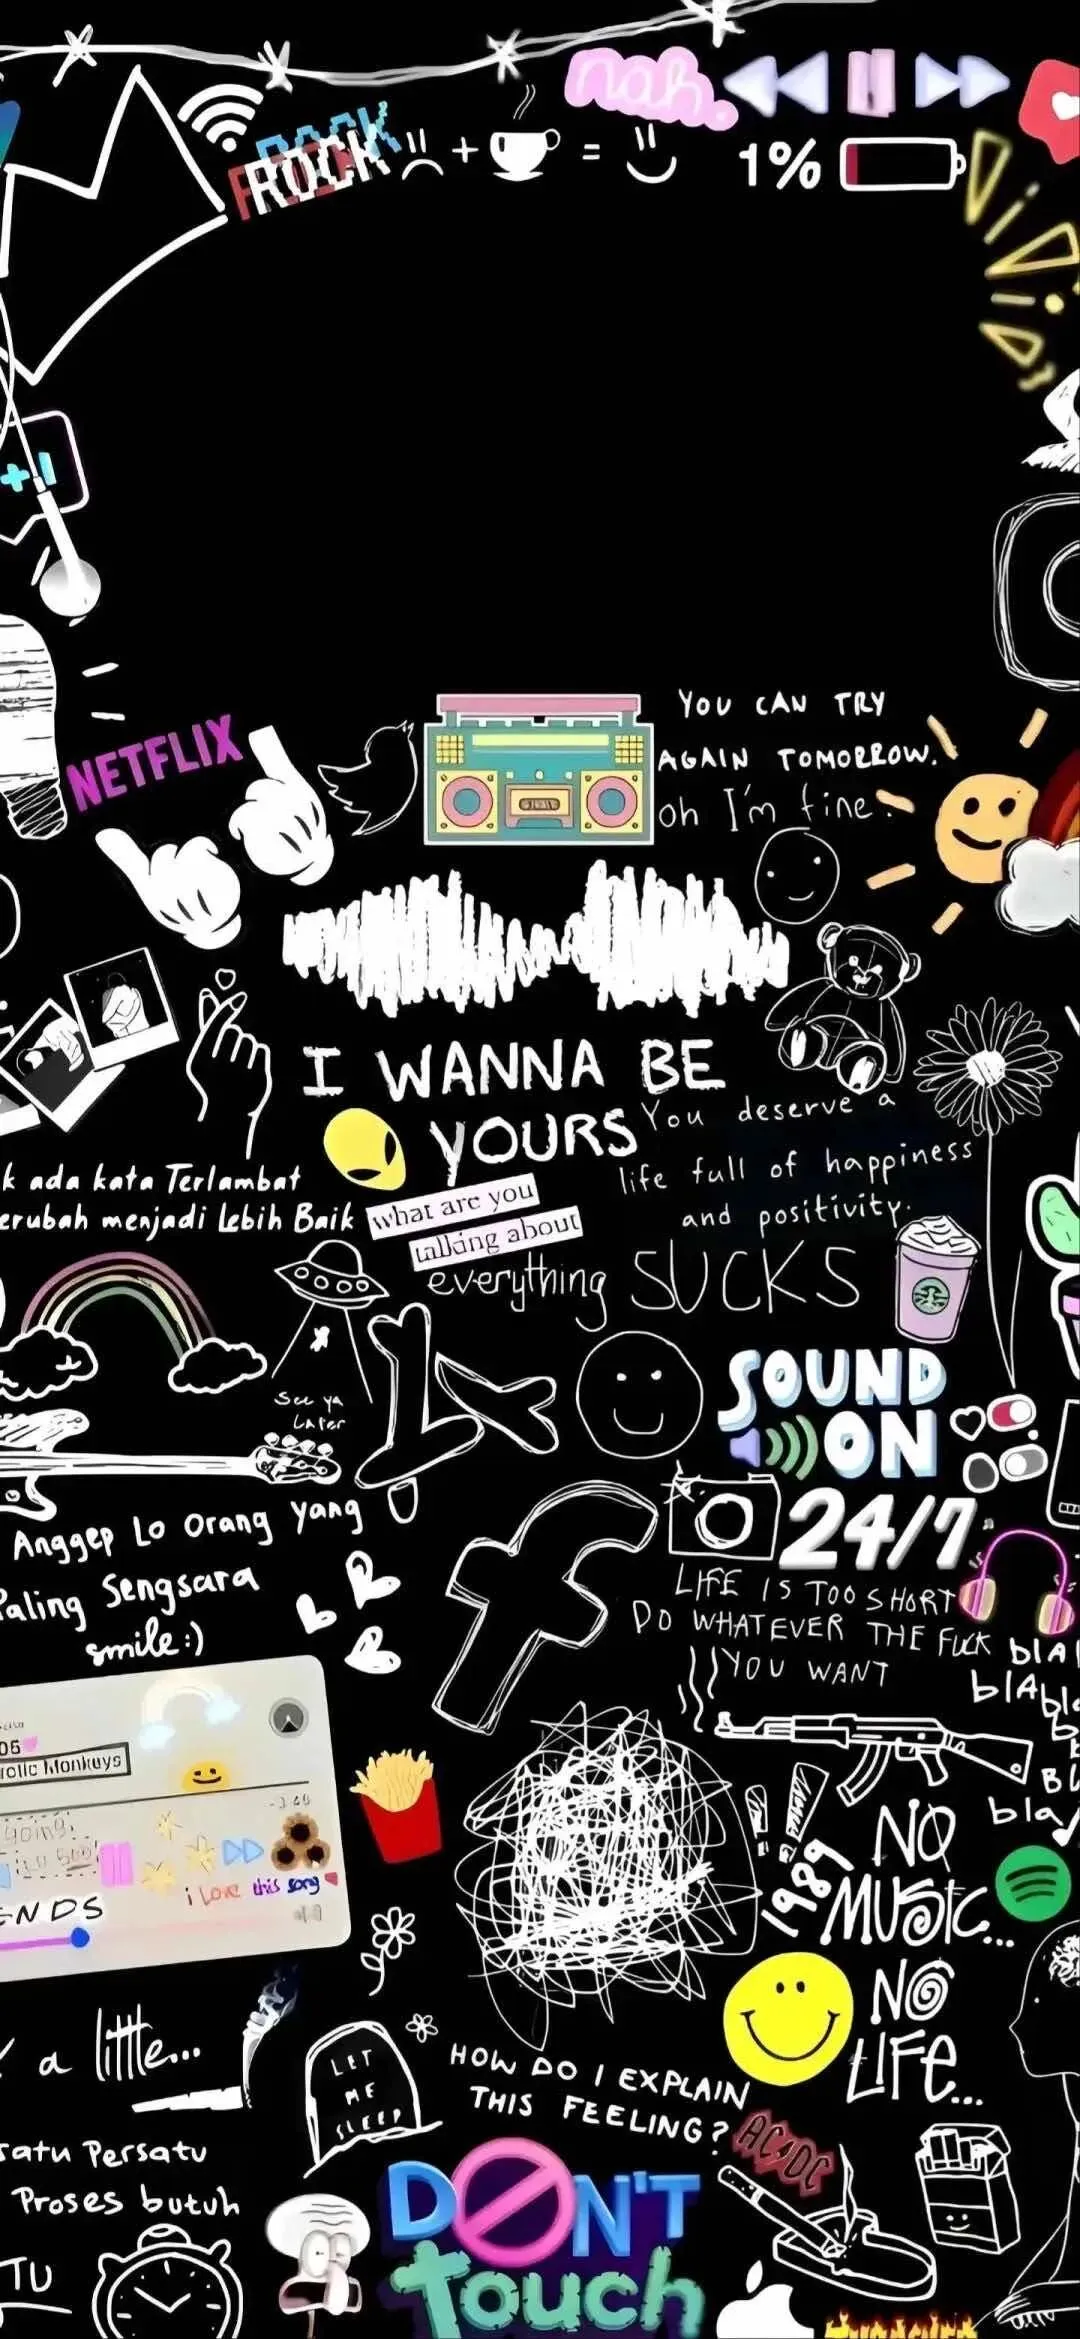 nah.
ROCK
+ =
1%
YOU CAN TRY
AGAIN TOMORROW.
oh I'm fine.
NETFLIX
I WANNA BE
YOURS
You deserve a
life full of happiness
and positivity.
k ada kata Terlambat
erubah menjadi Lebih Baik
what are you
talking about
everything SUCKS
See ya
Later
SOUND
ON
24/7
Anggep Lo Orang Yang
Paling Sengsara
smile:)
LIFE IS TOO SHORT
DO WHATEVER THE FUCK
YOU WANT
blA
blA
bla
Monkeys
going.
i Love this song
ENDS
1989
NO
MUSIC...
NO
LIFe...
a little...
LET
ME
SLEEP
HOW DO I EXPLAIN
THIS FEELING?
AC DC
satu Persatu
Proses butuh
TU
DON'T
Touch